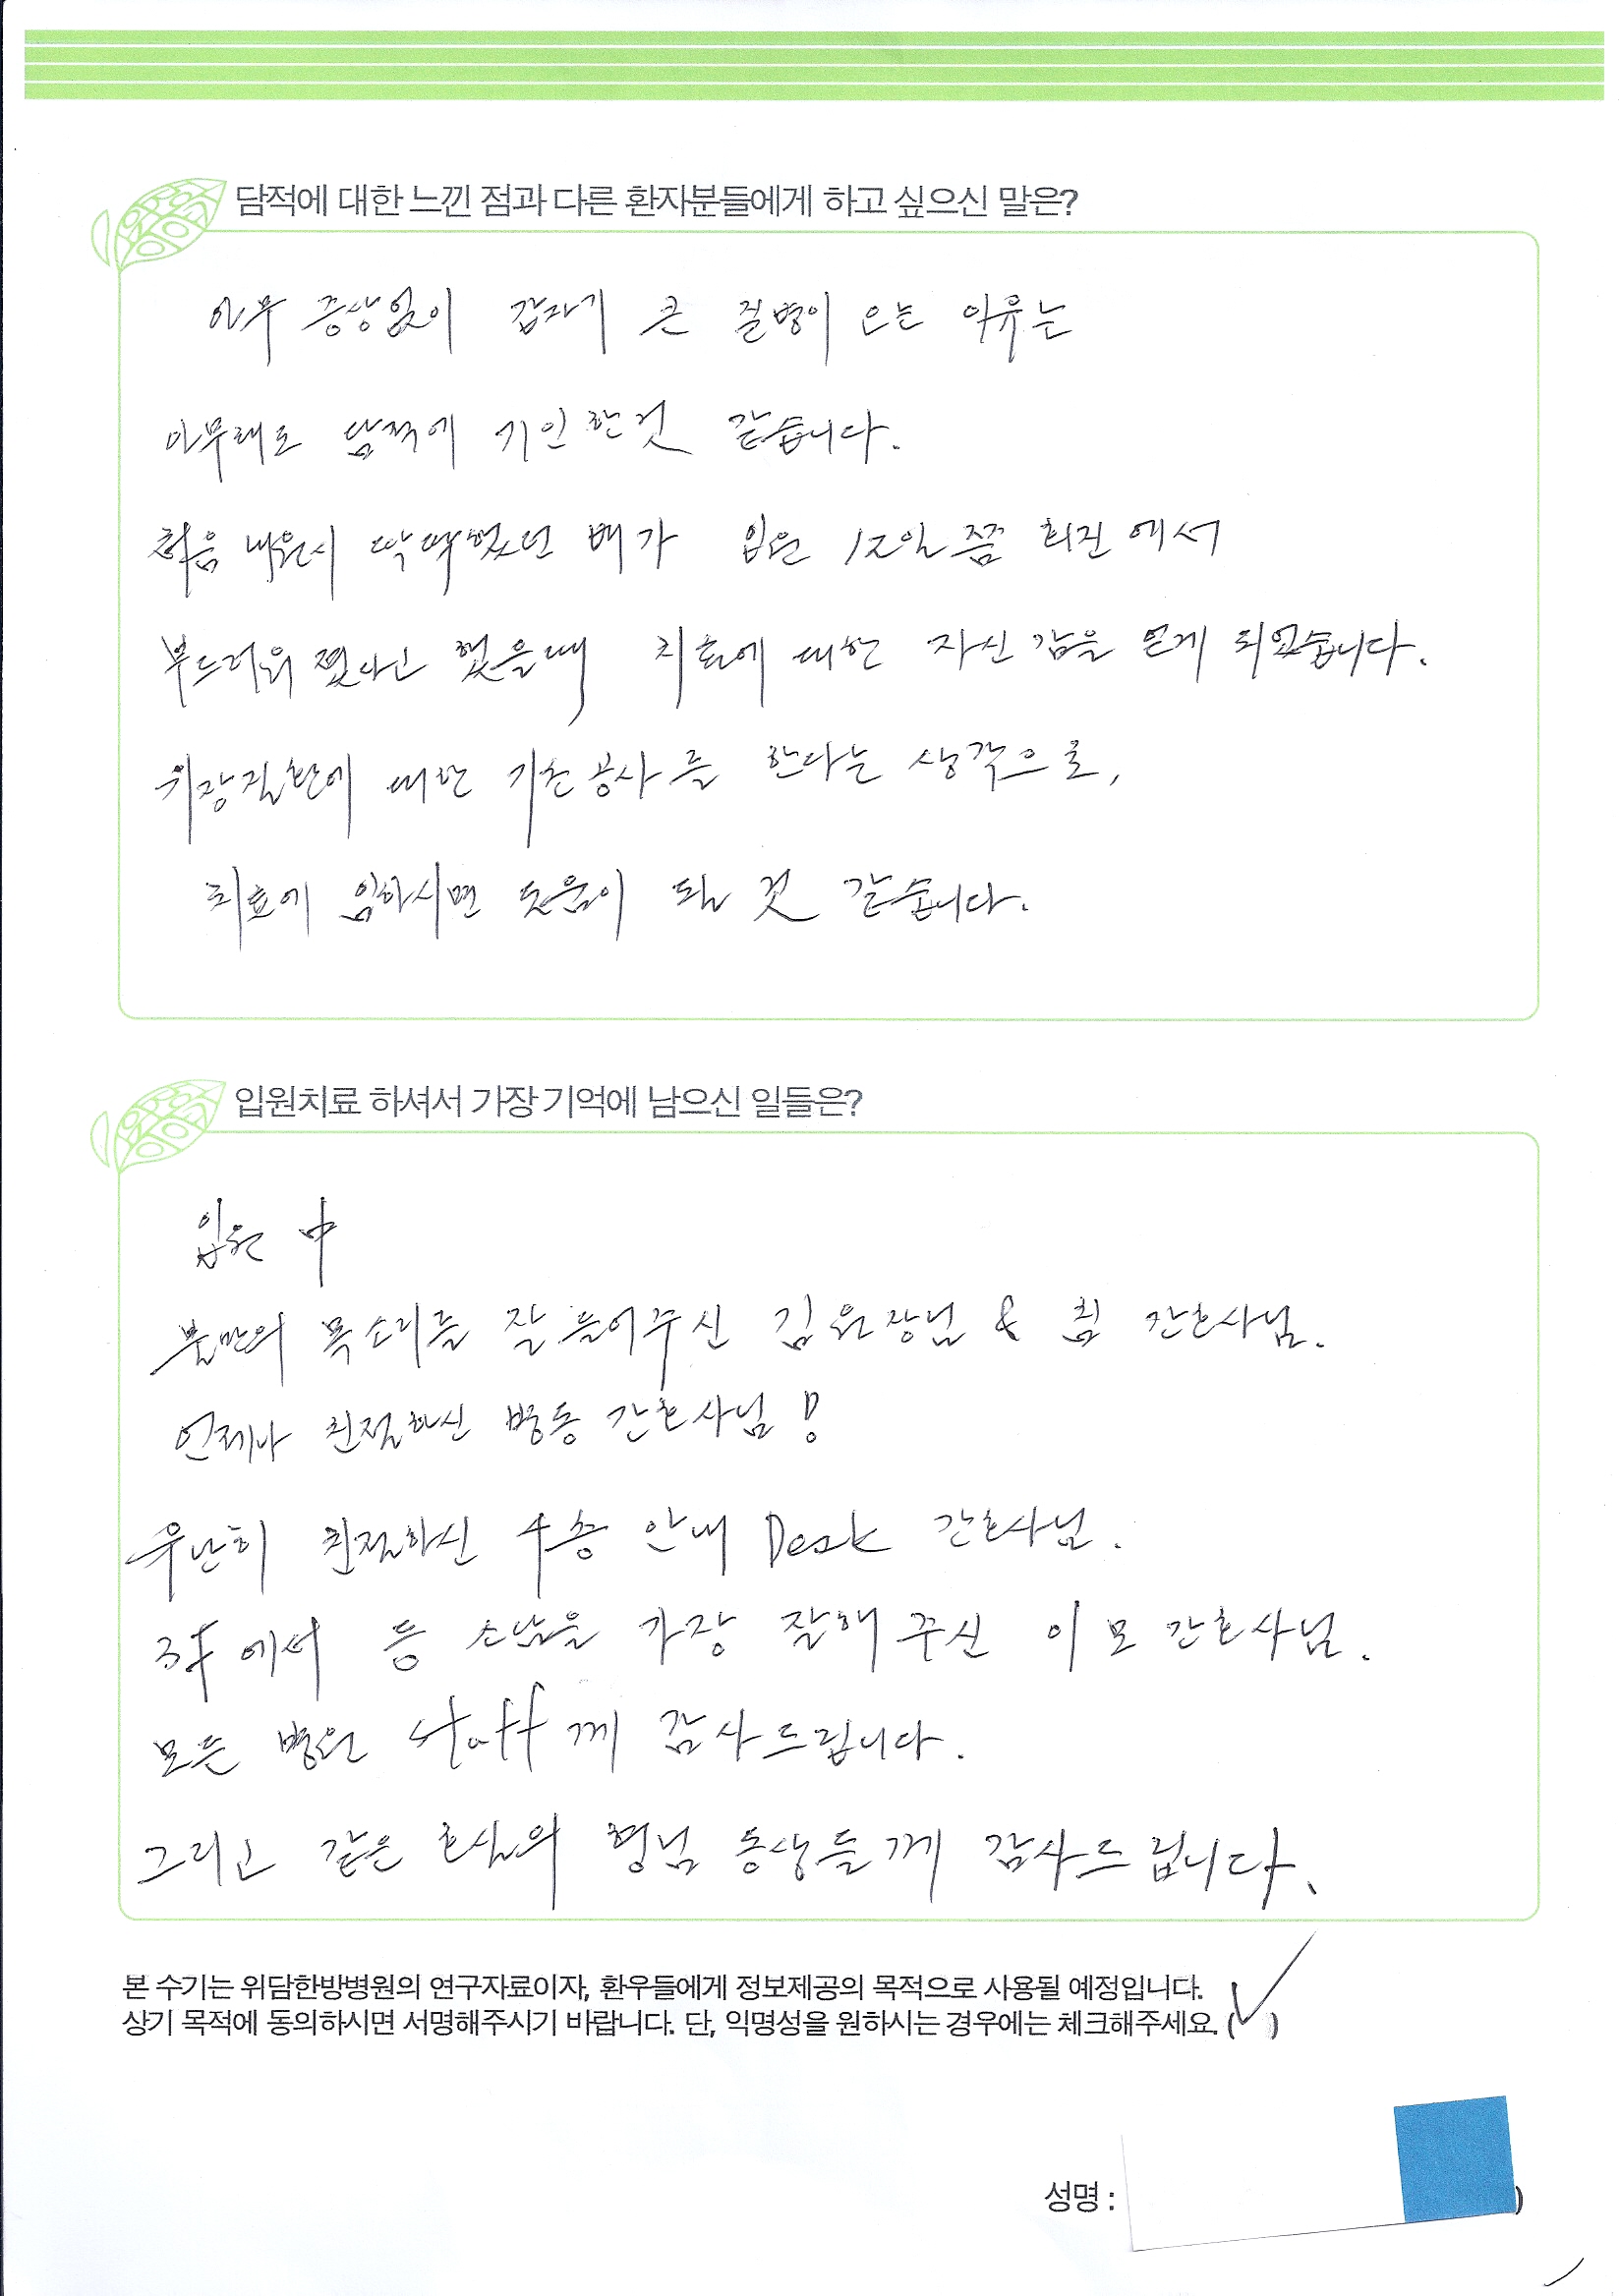 담적에 대한 느낀 점과 다른 환자분들에게 하고 싶으신 말은?
아무 증상없이 갑자기 큰 질병이 오는 이유는
아무래도 담적에 기인한것 같습니다.
처음 내원시 딱딱했었던 배가 입원 12일쯤 회진에서
부드러워 졌다고 했을때 치료에 대한 자신감을 얻게 되었습니다.
위장질환에 대한 기초공사를 한다는 생각으로,
치료에 임하시면 도움이 될 것 같습니다.
입원치료 하셔서 가장 기억에 남으신 일들은?
입원 中
불만의 목소리를 잘 들어주신 김원장님 & 침 간호사님.
언제나 친절하신 병동 간호사님!
무난히 친절하신 4층 안내 Desk 간호사님.
3F에서 등 소남을 가장 잘해 주신 이모 간호사님.
모든 병원 staff께 감사드립니다.
그리고 같은 호실의 형님 동생들께 감사드립니다.
본 수기는 위담한방병원의 연구자료이자, 환우들에게 정보제공의 목적으로 사용될 예정입니다.
상기 목적에 동의하시면 서명해주시기 바랍니다. 단, 익명성을 원하시는 경우에는 체크해주세요. (✓)
성명 : )